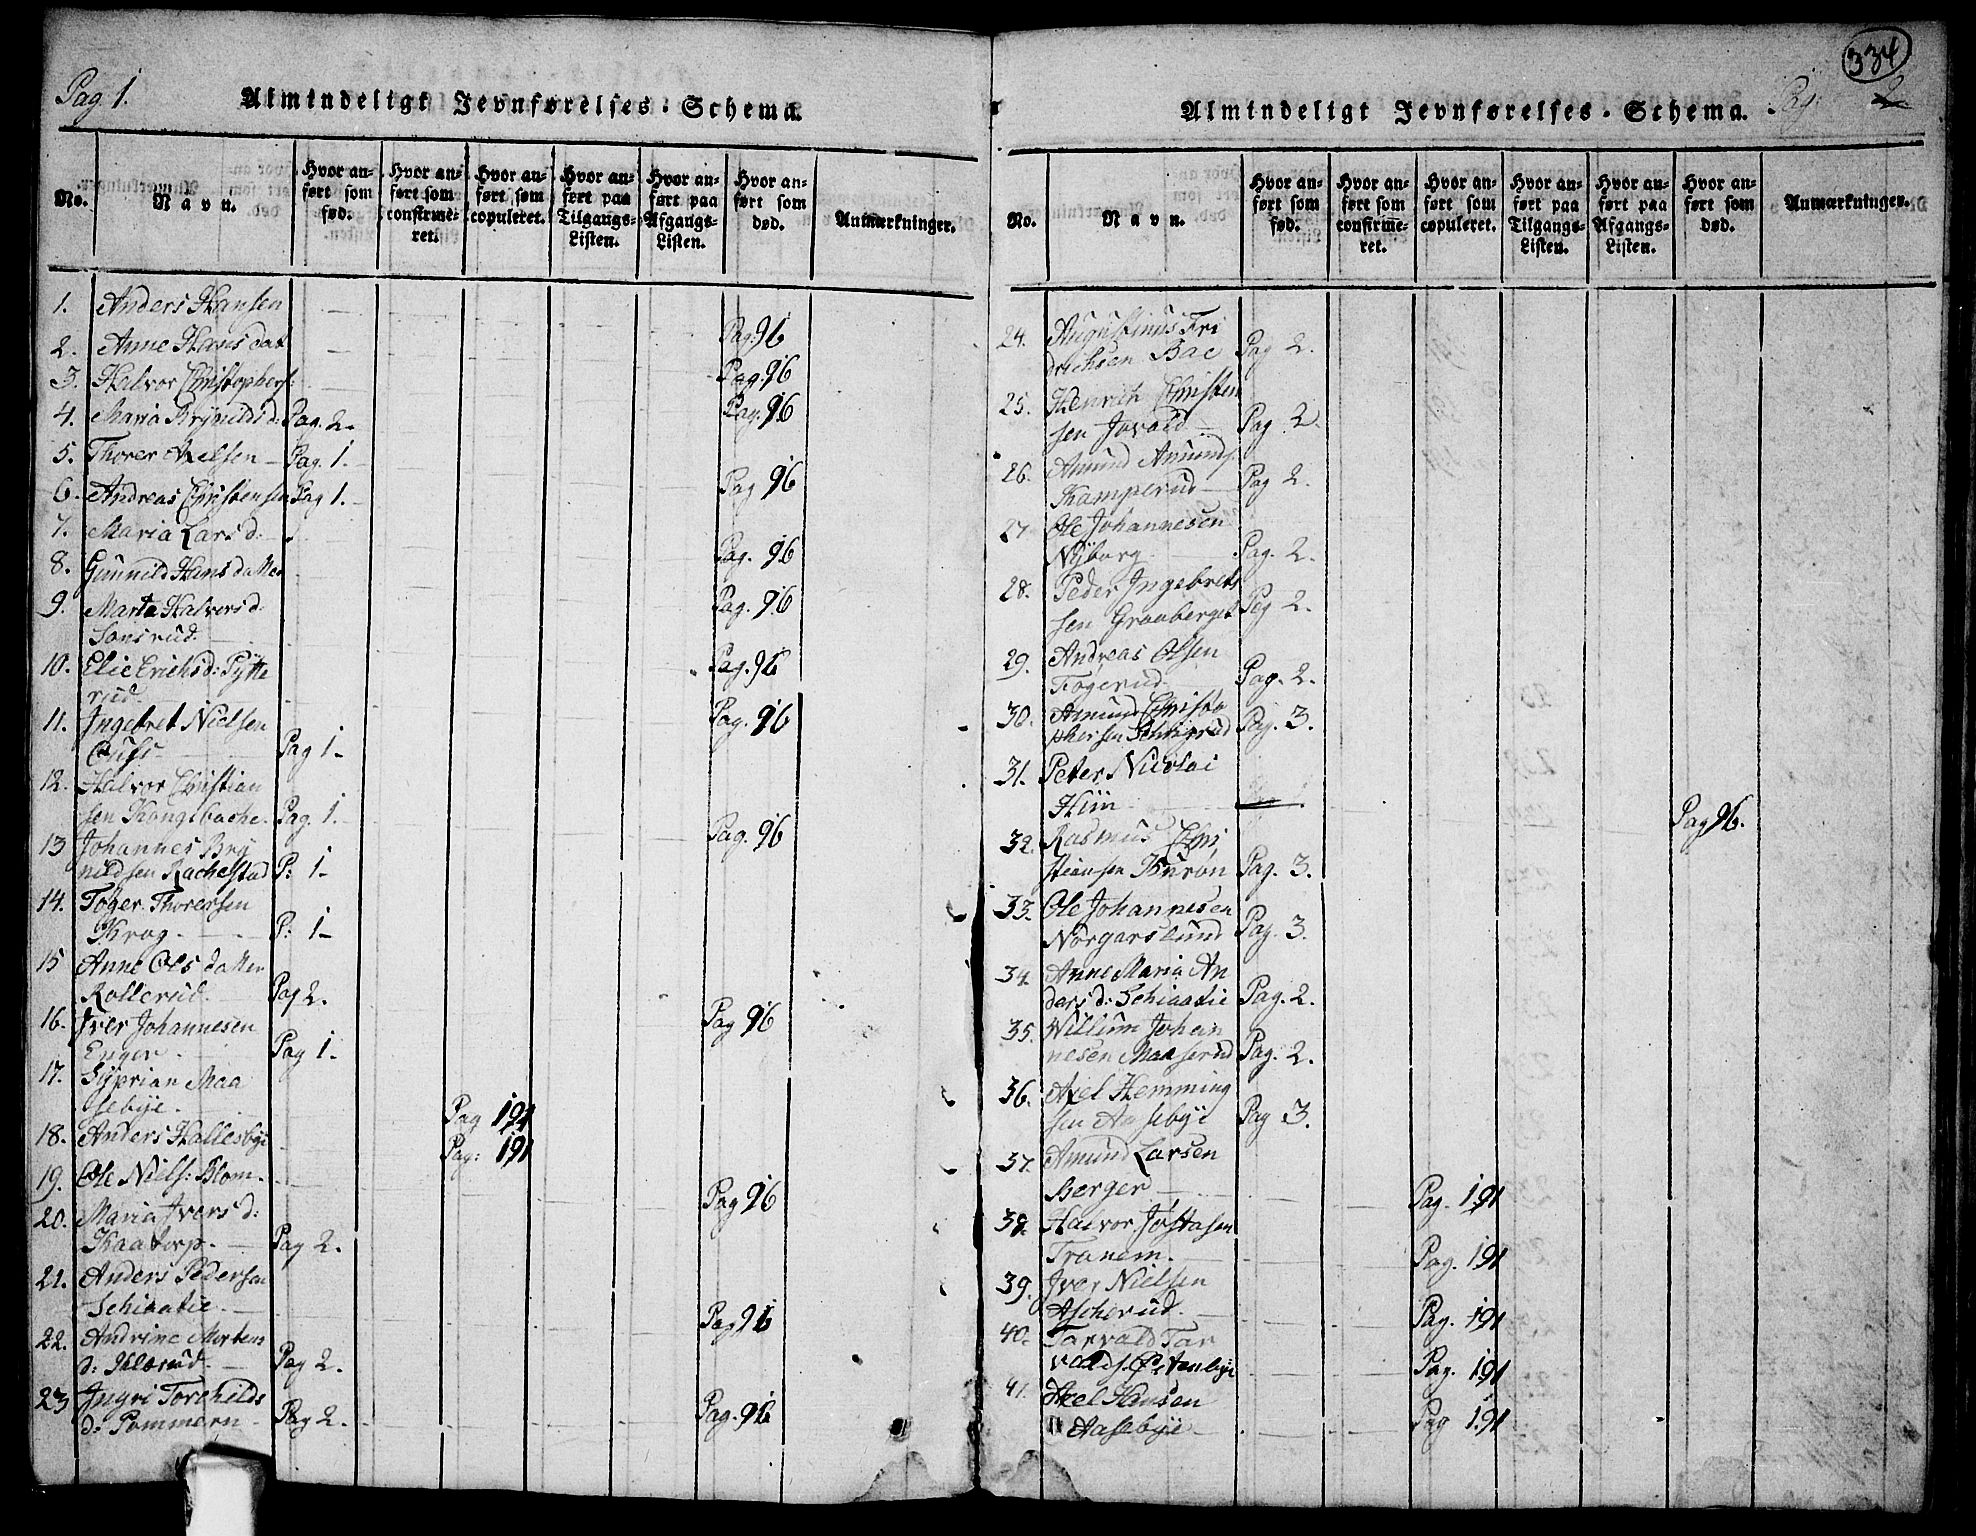 Pag 1.
Almindeligt Jevnførelses-Schema.
No.
Navn.
Hvor an-
ført som
fød.
Hvor an-
ført som
confirme-
ret.
Hvor an-
ført som
copuleret.
Hvor an-
ført paa
Tilgangs-
Listen.
Hvor an-
ført paa
Afgangs-
Listen.
Hvor an-
ført som
død.
Anmærkninger.
1. Anders Hansen
Pag. 96
2. Anne Hans dat
Pag. 96
3. Halvor Christophers:
Pag. 96
4. Maria Brynilds d: Pag. 2.
5. Thorer Axelsen Pag. 1.
Pag 96
6. Andreas Christensen Pag 1.
7. Maria Lars d:
Pag. 96
8. Gunnild Hans datter
Pag. 96
9. Marta Halvors d:
Sonsrud.
Pag. 96
10. Elie Erichs d: Pytte
rud.
Pag. 96
11. Ingebret Nielsen
Pag 1
12. Halvor Christian
sen Kongsbache. Pag. 1.
Pag. 96
13 Johannes Bry
nildsen Rachestad P: 1
14. Toger Thorersen
Krog. P: 1
15 Anne Ols datter
Rollerud. Pag 2.
Pag 96
16. Iver Johannesen
Enger. Pag 1.
17. Syprian Maa
sebye. Pag 191
18. Anders Hallesbye
Pag: 191
19. Ole Niels: Blom.
Pag 96
20. Maria Ivers d:
Kaatorp. Pag 2.
21. Anders Pedersen
Schiaatie.
Pag 96
22. Andrine Mortens
d: Klørud. Pag 2.
23 Ingri Torchilds
d: Pommern Pag 2.
Pag. 96
334
Pag. 2
Almindeligt Jevnførelses-Schema.
No.
Navn.
Hvor an-
ført som
fød.
Hvor an-
ført som
confirme-
ret.
Hvor an-
ført som
copuleret.
Hvor an-
ført paa
Tilgangs-
Listen.
Hvor an-
ført paa
Afgangs-
Listen.
Hvor an-
ført som
død.
Anmærkninger.
24. Augustinus Fri
drichsen Bae Pag 2.
25. Henrich Christen
sen Jovald Pag. 2.
26. Amund Amunds
Kamperud Pag 2.
27 Ole Johannesen
Nyborg. Pag. 2.
28. Peder Ingebrets
sen Graaberget Pag 2.
29. Andreas Olsen
Togerud Pag. 2.
30. Amund Christo
phersen Pag. 3.
31. Peter Nicolai
Hiin
Pag 96.
32. Rasmus Chri
stiansen Pag. 3.
33. Ole Johannesen
Norgarslund Pag. 3.
34. Anne Maria An
ders d: Schiaatie Pag. 2.
35. Willum Johan
nesen Maaserud Pag. 2.
36. Axel Hemming
sen Aasebye Pag 3.
37. Amund Larsen
Berger Pag. 191
38. Halvor Jostasen
Tranem. Pag. 191
39. Iver Nielsen
Ascherud. Pag. 191
40. Tarvald Tar
valds. Østenbye Pag. 191
41. Axel Hansen
Aasebye Pag 191